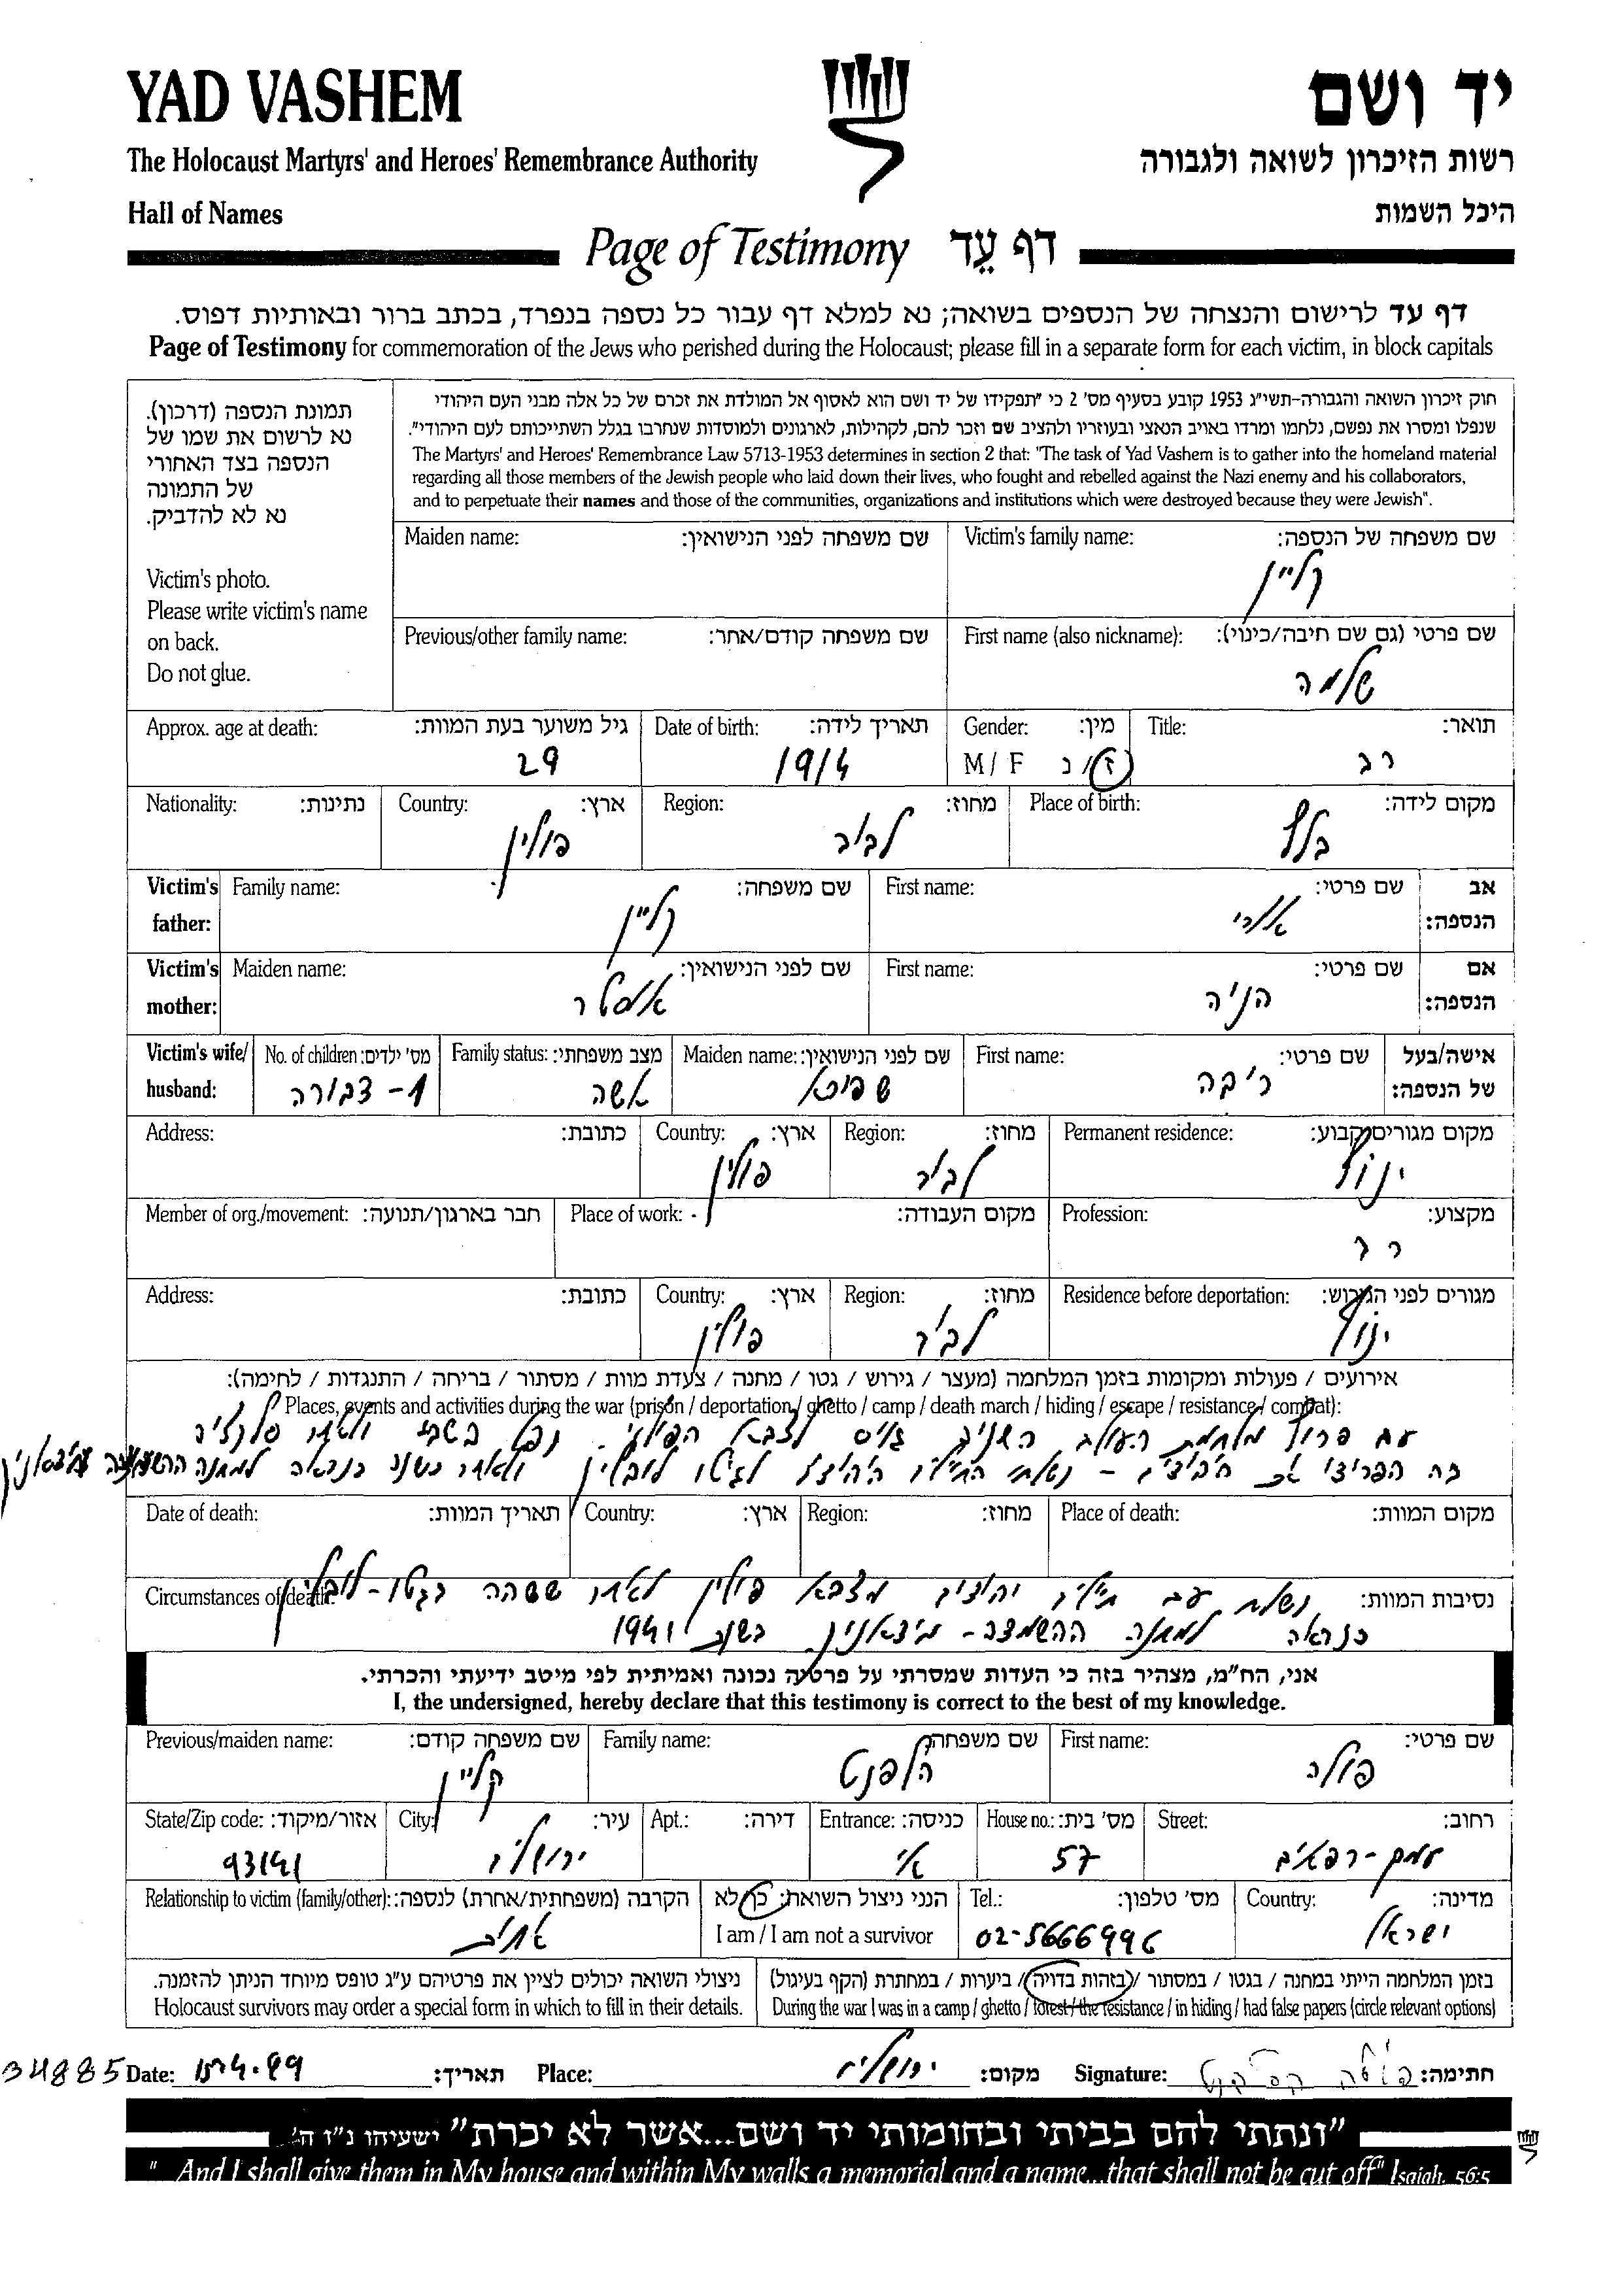 YAD VASHEM
יד ושם
The Holocaust Martyrs' and Heroes' Remembrance Authority
רשות הזיכרון לשואה ולגבורה
Hall of Names
היכל השמות
Page of Testimony דף עֵד
דף עד לרישום והנצחה של הנספים בשואה; נא למלא דף עבור כל נספה בנפרד, בכתב ברור ובאותיות דפוס.
Page of Testimony for commemoration of the Jews who perished during the Holocaust; please fill in a separate form for each victim, in block capitals
תמונת הנספה (דרכון).
נא לרשום את שמו של
הנספה בצד האחורי
של התמונה
נא לא להדביק.
Victim's photo.
Please write victim's name
on back.
Do not glue.
חוק זיכרון השואה והגבורה-תשי"ג 1953 קובע בסעיף מס' 2 כי "תפקידו של יד ושם הוא לאסוף אל המולדת את זכרם של כל אלה מבני העם היהודי
שנפלו ומסרו את נפשם, נלחמו ומרדו באויב הנאצי ובעוזריו ולהציב שם וזכר להם, לקהילות, לארגונים ולמוסדות שנחרבו בגלל השתייכותם לעם היהודי".
The Martyrs' and Heroes' Remembrance Law 5713-1953 determines in section 2 that: "The task of Yad Vashem is to gather into the homeland material
regarding all those members of the Jewish people who laid down their lives, who fought and rebelled against the Nazi enemy and his collaborators,
and to perpetuate their names and those of the communities, organizations and institutions which were destroyed because they were Jewish".
Victim's family name: שם משפחה של הנספה:
קליין
Maiden name: שם משפחה לפני הנישואין:
First name (also nickname): שם פרטי (גם שם חיבה/כינוי):
שלמה
Previous/other family name: שם משפחה קודם/אחר:
Title: תואר:
רב
Gender: מין:
M / F ז/נ
Date of birth: תאריך לידה:
1914
Approx. age at death: גיל משוער בעת המוות:
29
Place of birth: מקום לידה:
בלץ
Region: מחוז:
לביב
Country: ארץ:
פולין
Nationality: נתינות:
אב
הנספה:
First name: שם פרטי:
ארי
Family name: שם משפחה:
קליין
Victim's
father:
אם
הנספה:
First name: שם פרטי:
הניה
Maiden name: שם לפני הנישואין:
אמסטר
Victim's
mother:
אישה/בעל
של הנספה:
First name: שם פרטי:
ריבה
Maiden name: שם לפני הנישואין:
שפירא
Family status: מצב משפחתי:
אשה
No. of children: מס' ילדים:
1 - דבורה
Victim's wife/
husband:
Permanent residence: מקום מגורים קבוע:
ינוב
Region: מחוז:
לביב
Country: ארץ:
פולין
Address: כתובת:
Profession: מקצוע:
רב
Place of work: מקום העבודה:
Member of org./movement: חבר בארגון/תנועה:
Residence before deportation: מגורים לפני הגירוש:
ינוב
Region: מחוז:
לביב
Country: ארץ:
פולין
Address: כתובת:
אירועים / פעולות ומקומות בזמן המלחמה (מעצר / גירוש / גטו / מחנה / צעדת מוות / מסתור / בריחה / התנגדות / לחימה):
Places, events and activities during the war (prison / deportation / ghetto / camp / death march / hiding / escape / resistance / combat):
עם פרוץ מלחמת העולם השניה גויס לצבא הפולני. נפל בשבי ולאחר
בה הפרידו את לגיטו לובלין ולאחר כשנה כנראה למחנה ההשמדה
Place of death: מקום המוות:
Region: מחוז:
Country: ארץ:
Date of death: תאריך המוות:
Circumstances of death: נסיבות המוות:
נשלח עם חיילים יהודים מצבא פולין לאחר ששהה בגטו-לובלין
כנראה למחנה ההשמדה - מיידאניק בשנת 1941
אני, הח"מ, מצהיר בזה כי העדות שמסרתי על פרטיה נכונה ואמיתית לפי מיטב ידיעתי והכרתי.
I, the undersigned, hereby declare that this testimony is correct to the best of my knowledge.
First name: שם פרטי:
פולה
Family name: שם משפחה:
הלפנט
Previous/maiden name: שם משפחה קודם:
קליין
Street: רחוב:
עמק-רפאים
House no.: מס' בית:
57
Entrance: כניסה:
א'
Apt.: דירה:
City: עיר:
ירושלים
State/Zip code: אזור/מיקוד:
93141
Country: מדינה:
ישראל
Tel.: מס' טלפון:
02-5666996
הנני ניצול השואה: כן/לא
I am / I am not a survivor
Relationship to victim (family/other): הקרבה (משפחתית/אחרת) לנספה:
אחות
בזמן המלחמה הייתי במחנה / בגטו / במסתור / בזהות בדויה / ביערות / במחתרת (הקף בעיגול)
During the war I was in a camp / ghetto / forest / the resistance / in hiding / had false papers (circle relevant options)
ניצולי השואה יכולים לציין את פרטיהם ע"ג טופס מיוחד הניתן להזמנה.
Holocaust survivors may order a special form in which to fill in their details.
חתימה: Signature: פולה הלפנט
מקום: ירושלים Place:
תאריך: Date:
34885
"ונתתי להם בביתי ובחומותי יד ושם...אשר לא יכרת" ישעיהו נ"ו ה'
" And I shall give them in My house and within My walls a memorial and a name...that shall not be cut off" Isaiah, 56:5